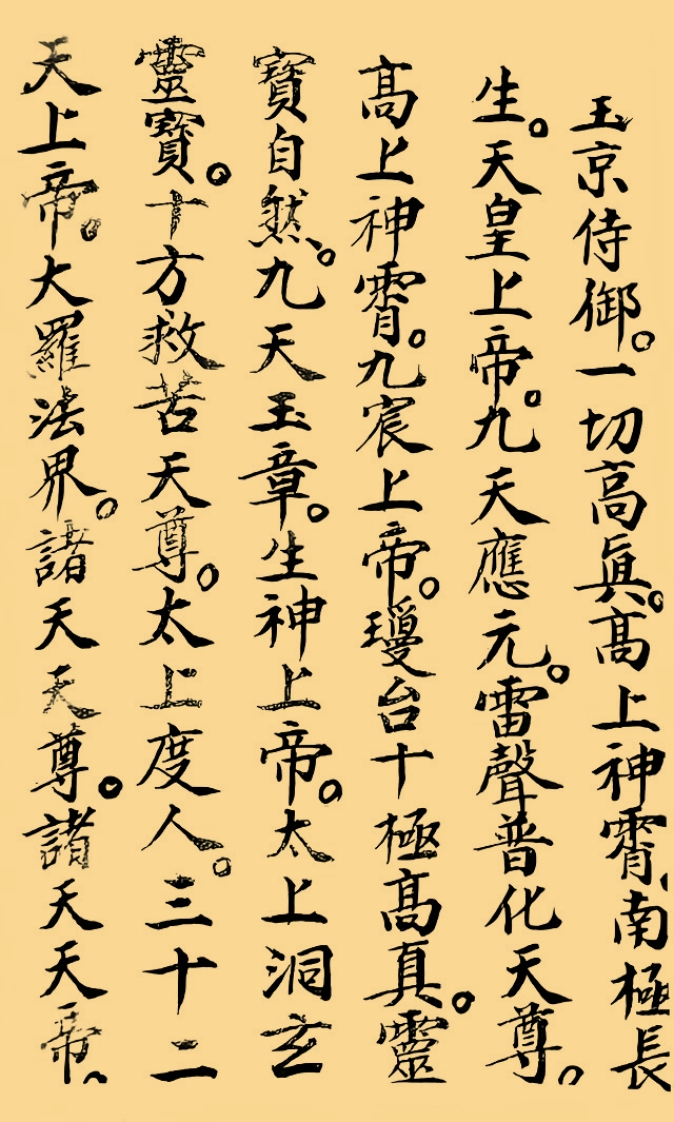 玉京侍御。一切高真。高上神霄、南極長
生。天皇上帝。九天應元。雷聲普化天尊。
高上神霄。九宸上帝。瓊台十極高真。靈
寶自然。九天玉章。生神上帝。太上洞玄
靈寶。十方救苦天尊。太上度人。三十二
天上帝。大羅法界。諸天天尊。諸天天帝。